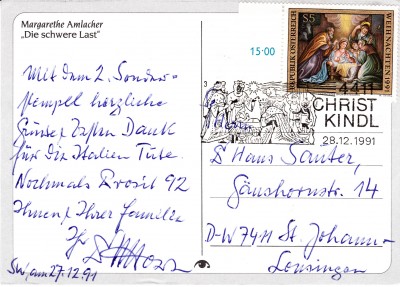 Margarethe Amlacher
„Die schwere Last"
Mit dem 2. Sonder-
stempel herzliche
Grüsse Vielen Dank
für die Italien Tüte.
Nochmals Prosit 92
Ihnen & Ihrer Familie
Ihr
27.12.91
15·00
S5
REPUBLIK ÖSTERREICH
WEIHNACHTEN 1991
4411
CHRIST
KINDL
28.12.1991
3
Herrn
Hans Sauter,
14
D-W7411 St. Johann-